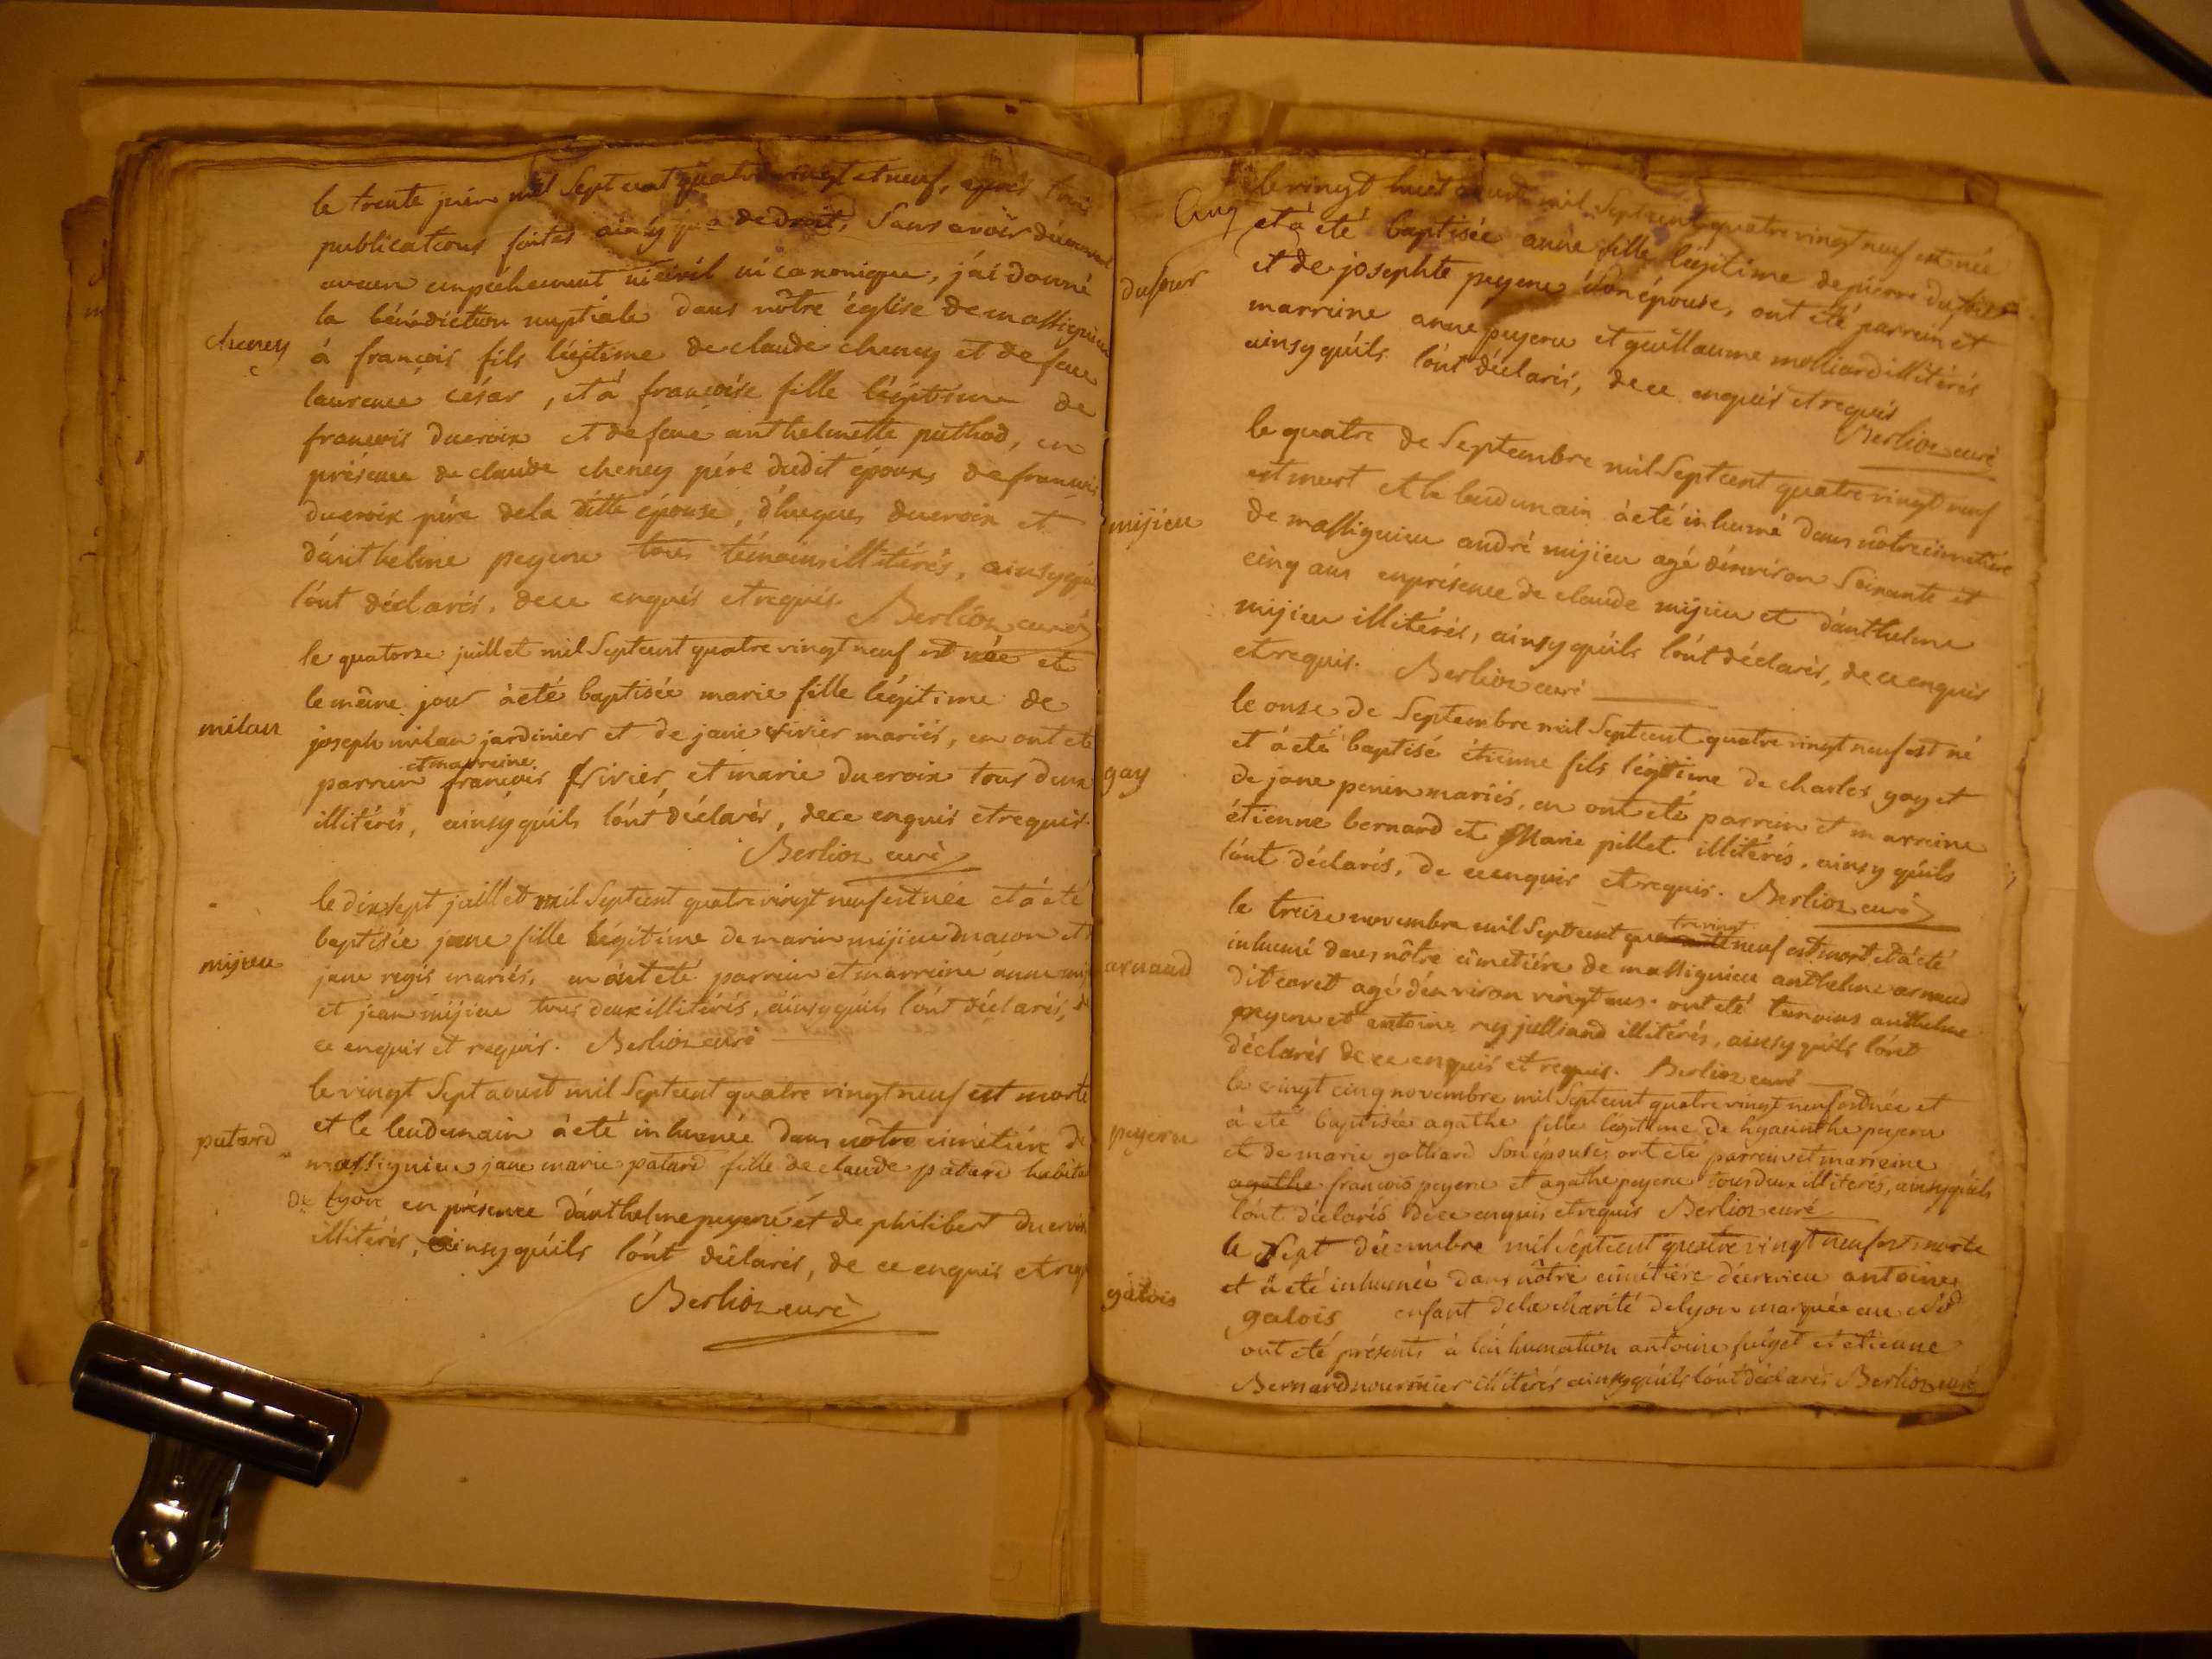 le trente juin mil Sept cent quatre vingt et neuf, après trois
publications faites ainsy que de droit, Sans avoir découvert
aucun empéchement ni civil ni canonique, j'ái donné
la bénédiction nuptiale dans nôtre église de massignieu
cheney
á françois fils légitime de claude cheney et de feue
laurence césar, et á françoise fille légitime de
françois ducroix et de feue anthelmette puthod, en
présence de claude cheney pére dudit époux, de françois
ducroix pére dela ditte épouse, d'hugues ducroix et
dánthelme peyene tous témoins illitérés, ainsy qu'ils
lónt déclarés, dece enquis et requis. Berlioz curé
le quatorze juillet mil Septcent quatre vingt neuf est née et
le même jour áeté baptisée marie fille légitime de
milan
joseph milan jardinier et de jane vivier mariés, en ont eté
parrein et marreine françois vivier, et marie ducroix tous deux
illitérés, ainsy qúils lónt déclarés, dece enquis et requis.
Berlioz curé
le dixsept juillet mil Septcent quatre vingt neuf est née et á eté
baptisée jane fille légitime de marin mijieu macon et
mijieu
jane regis mariés, en ónt eté parrein et marreine anne
et jean mijieu tous deux illitérés, ainsy qúils lónt déclarés, de
ce enquis et requis. Berlioz curé
le vingt Sept aoust mil Septcent quatre vingt neuf est morte
et le lendemain á eté inhumée dans nôtre cimétiére de
patard
massignieu jane marie patard fille de claude patard
De lyon en présence dánthelme peyene et de philibert ducroix
illitérés, ainsy qúils lónt déclarés, de ce enquis et
Berlioz curé
le vingt huit aoust mil Septcent quatre vingt neuf est née
et á été baptisée anne fille légitime de pierre dufour
dufour
et de josephte peyene Son épouse, ont été parrein et
marreine anne peyene et guillaume molliard illitérés
ainsy qúils lónt déclarés, dece enquis et requis
Berlioz curé
le quatre de Septembre mil Septcent quatre vingt neuf
est mort et le lendemain áeté inhumé dans nôtre cimetiére
mijieu
de massignieu andré mijieu agé dénviron Soixante et
cinq ans en présence de claude mijieu et dánthelme
mijieu illitérés, ainsy qúils lónt déclarés, de ce enquis
et requis. Berlioz curé
le onze de Septembre mil Septcent quatre vingt neuf est né
et áeté baptisé étienne fils légitime de charles gay et
gay
de jane penin mariés, en ont eté parrein et marreine
étienne bernard et Marie pillet illitérés, ainsy qúils
lónt déclarés, de ce enquis et requis. Berlioz curé
le treize novembre mil Septcent tre vingt neuf est mort et á eté
inhumé dans nôtre cimetiére de massignieu anthelme arnaud
arnaud
dit agé dénviron vingt ans. ont eté temoins anthelme
peyene et antoine rey julliand illitérés, ainsy qúils lónt
déclarés dece enquis et requis. Berlioz curé
le vingt cinq novembre mil Septcent quatre vingt neuf est née et
peyene
á eté baptisée agathe fille légitime de hyacinthe peyene
et de marie galliard Son épouse, ont eté parrein et marreine
agathe françois peyene et agathe peyene tous deux illiterés, ainsy qúils
lónt déclarés dece enquis et requis Berlioz curé
le Sept décembre mil Septcent quatre vingt neuf est morte
et á eté inhumée dans nôtre cimétiére antoine
galois
galois enfant dela charité de lyon marquée au
ont eté présents á linhumation antoine et etienne
Bernard nourricier illitérés ainsy qúils lónt déclarés Berlioz curé